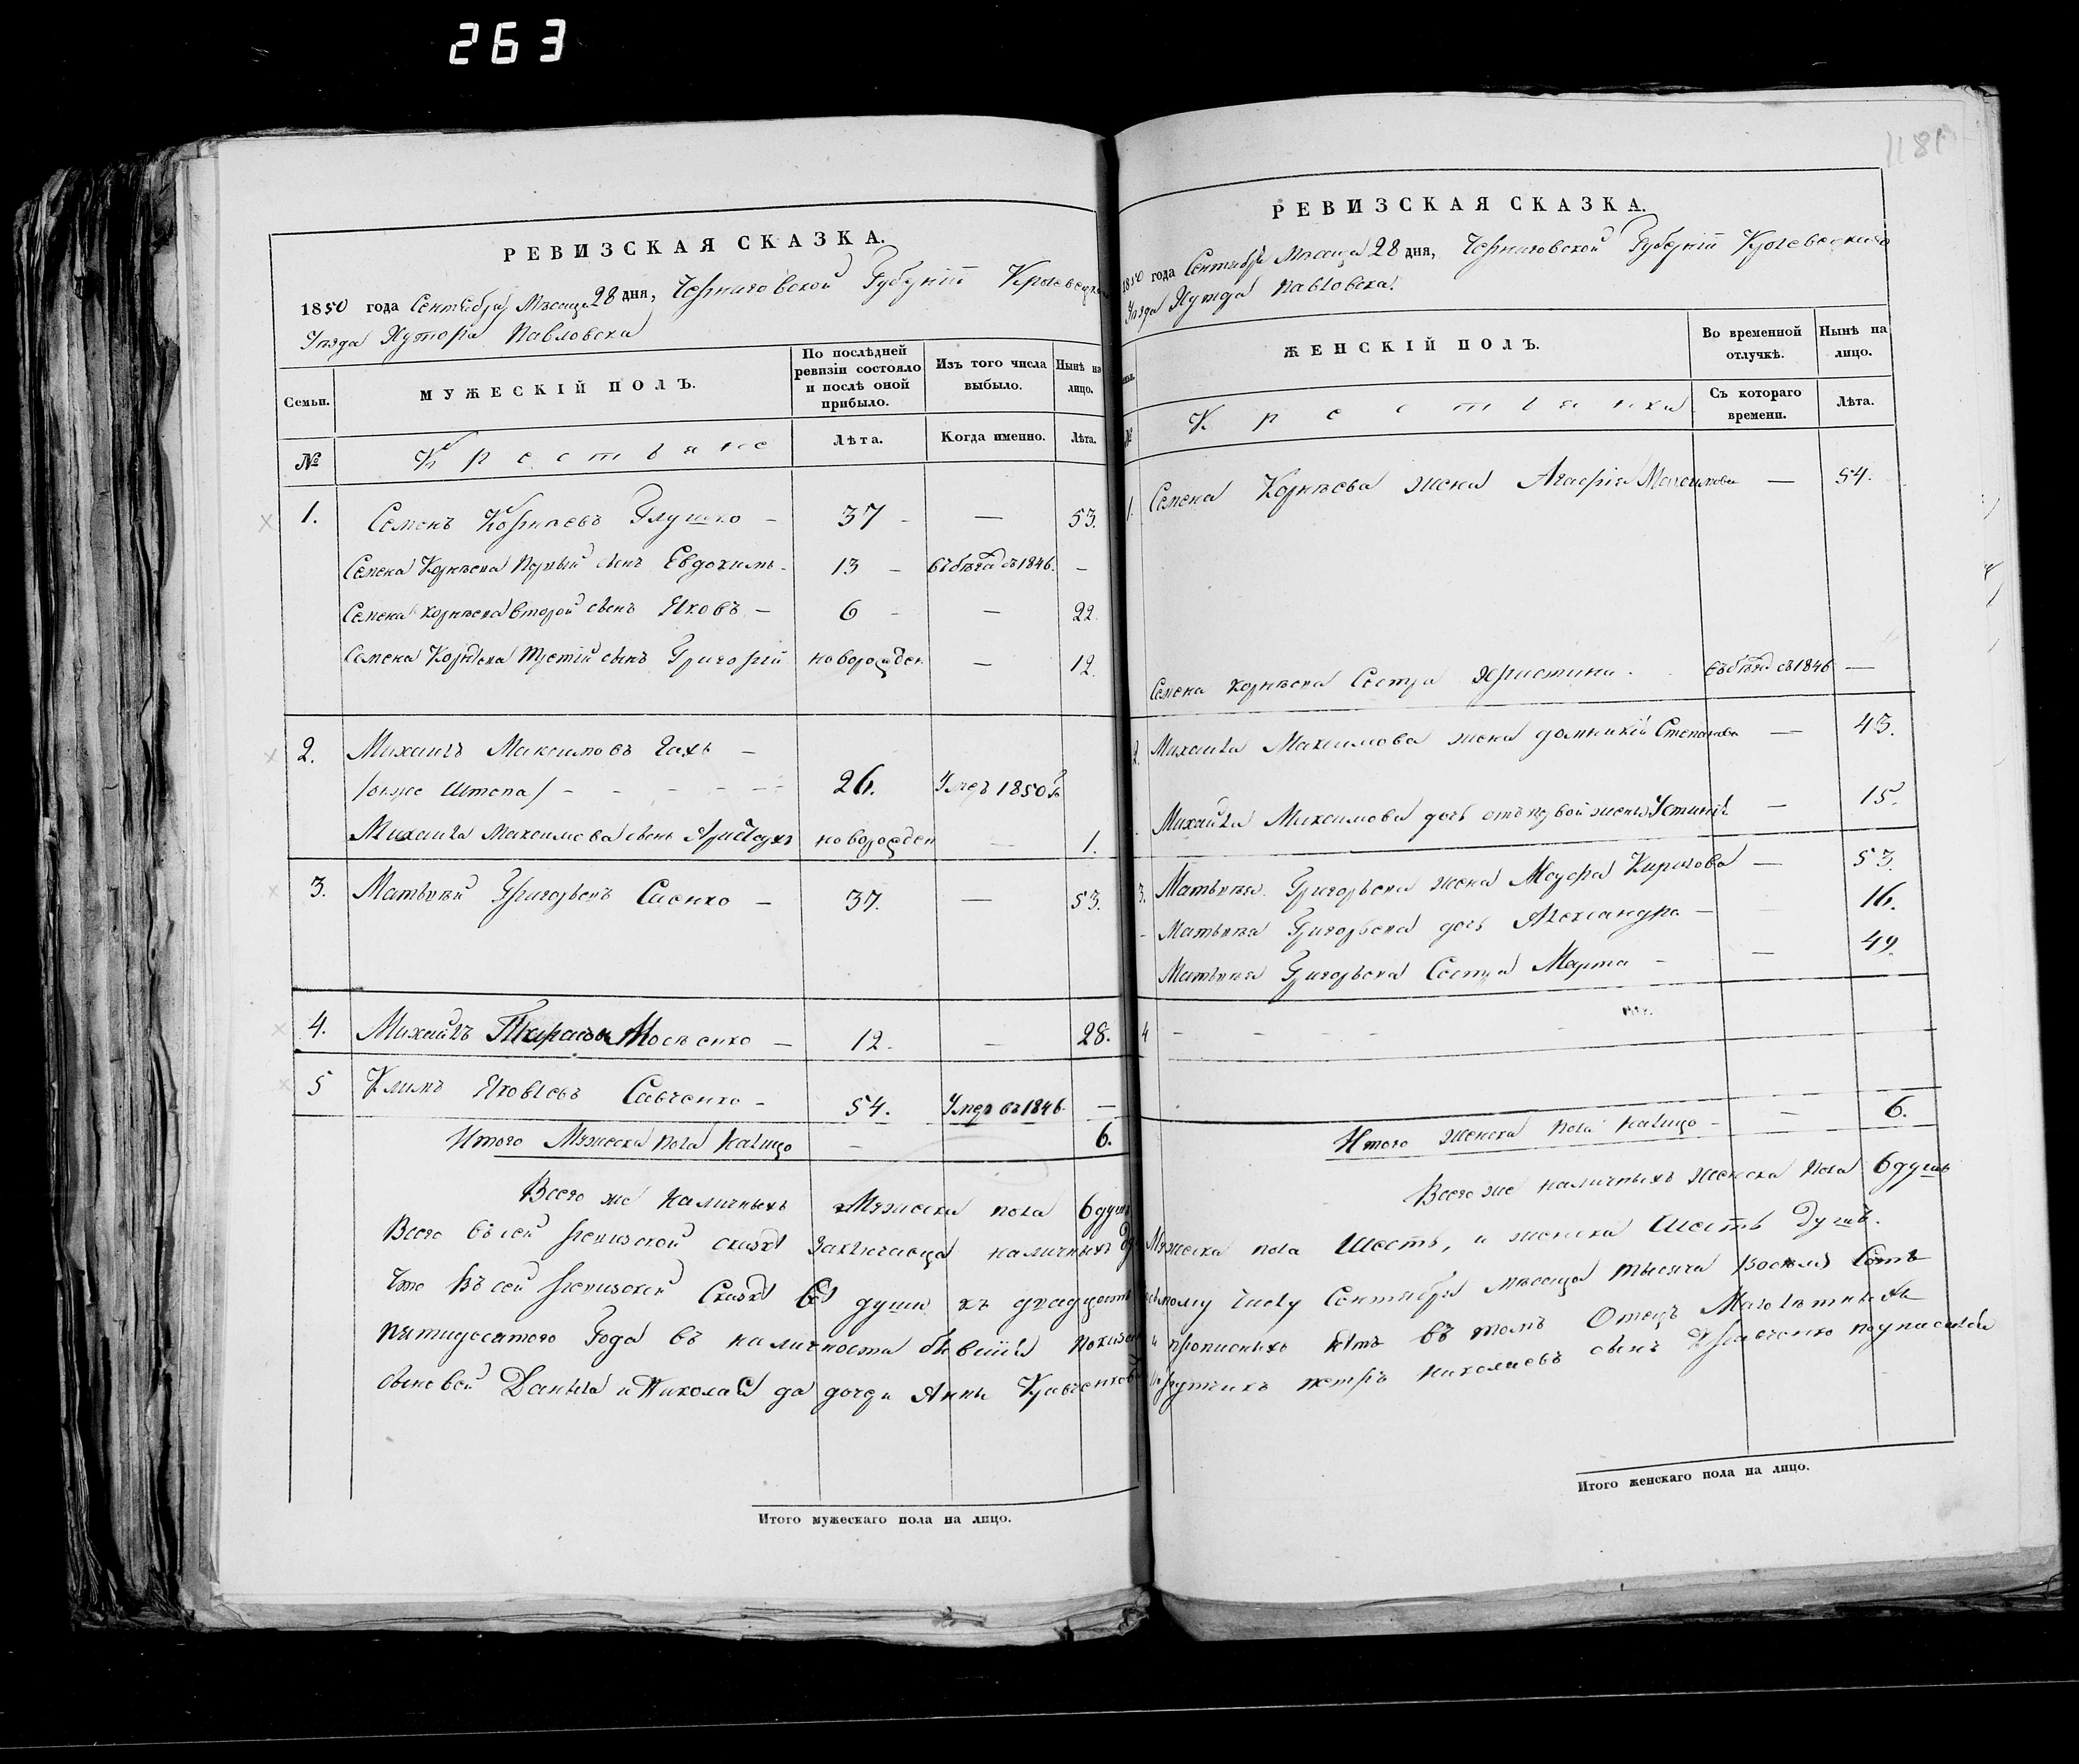 263
РЕВИЗСКАЯ СКАЗКА.
1850 года Сентября Месяца 28 дня, Черниговской Губерніи
Уезда Хутора Павловска
Семьи.
МУЖЕСКІЙ ПОЛЪ.
По послѣдней ревизіи состояло и послѣ оной прибыло.
Изъ того числа выбыло.
Нынѣ на лицо.
№
Крестьяне
Лѣта.
Когда именно.
Лѣта.
1. Семенъ Корнѣевъ Глушко — 37 — — 53.
Семена Корнѣева Первый сынъ Евдокимъ — 13 — въ бѣгах съ 1846. —
Семена Корнѣева Второй сынъ Яковъ — 6 — — 22.
Семена Корнѣева Третій сынъ Григорій новорожден — 12.
2. Михаилъ Максимовъ —
/онже Штепа/ — 26. Умеръ 1850
Михаила Максимова сынъ новорожден — 1.
3. Матвѣй Григорьевъ Саенко — 37. — 53.
4. Михаилъ Мосѣенко — 12. — 28.
5 Климъ Яковлевъ Савченко — 54. Умеръ въ 1846. —
Итого Мужеска пола налицо — 6.
Всего же наличныхъ Мужеска пола 6 душъ
Всего въ сей ревизской сказкѣ заключается наличныхъ
Что въ сей ревизской Сказкѣ души къ двадцать
пятидесятого Года въ наличности бывшія
сыновей Данила и Николай да дочери Анны
Итого мужескаго пола на лицо.
РЕВИЗСКАЯ СКАЗКА.
1850 года Сентября Месяца 28 дня, Черниговской Губерніи
Уезда Хутора Павловска.
№
ЖЕНСКІЙ ПОЛЪ.
Во временной отлучкѣ.
Нынѣ на лицо.
Крестьянки
Съ котораго времени.
Лѣта.
1. Семена Корнѣева жена Агафія Максимова — 54.
Семена Корнѣева Сестра Христина. въ бѣгах съ 1846 —
2. Михаила Максимова жена Степанова — 43.
Михаила Максимова дочь отъ первой жены — 15.
3. Матвѣя Григорьева жена Кирилова — 53.
Матвѣя Григорьева дочь Александра — 16.
Матвѣя Григорьева Сестра Марта — 49.
4 — — — —
Итого женска пола налицо — 6.
Всего же наличныхъ женска пола 6 душъ
Мужеска пола Шесть, и женска Шесть Душъ.
числу Сентября месяца тысяча Восемь Сотъ
и прописныхъ нѣтъ въ томъ Отецъ
Петръ Николаевъ сынъ Кравченко подписался
Итого женскаго пола на лицо.